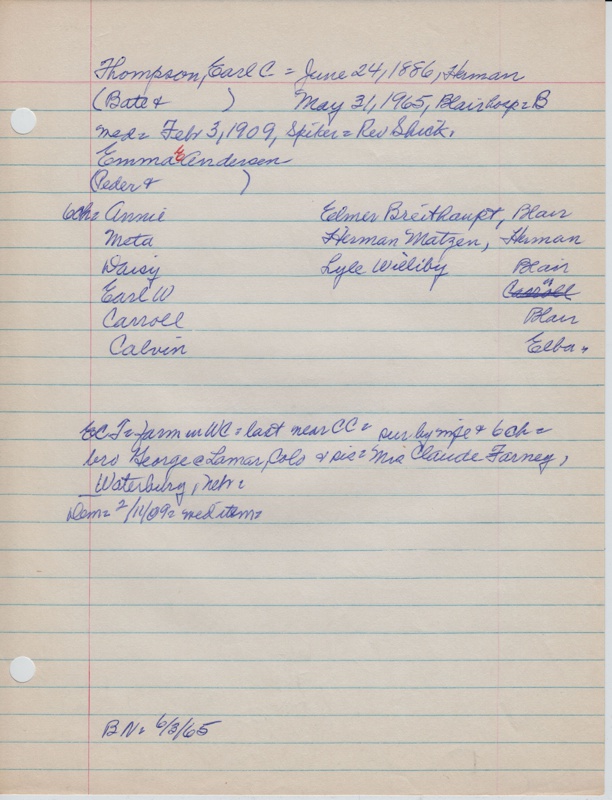 Thompson, Earl C. = June 24, 1886, Herman
(Bate & ) May 31, 1965, Blair hosp = B
med = Febr 3, 1909, Spiker = Rev Shick.
Emma E Andersen
(Peder & )
6ch = Annie Elmer Breithaupt, Blair
Meta Herman Matzen, Herman
Daisy Lyle Williby Blair
Earl W Carroll "
Carroll Blair
Calvin Elba.
ECT = farm in WC = last near CC = sur by wife & 6 ch =
bro George @ Lamar, Colo & sis = Mrs Claude Farney,
Waterbury, Nebr =
Dem = 2/11/09 = med item =
BN = 6/3/65